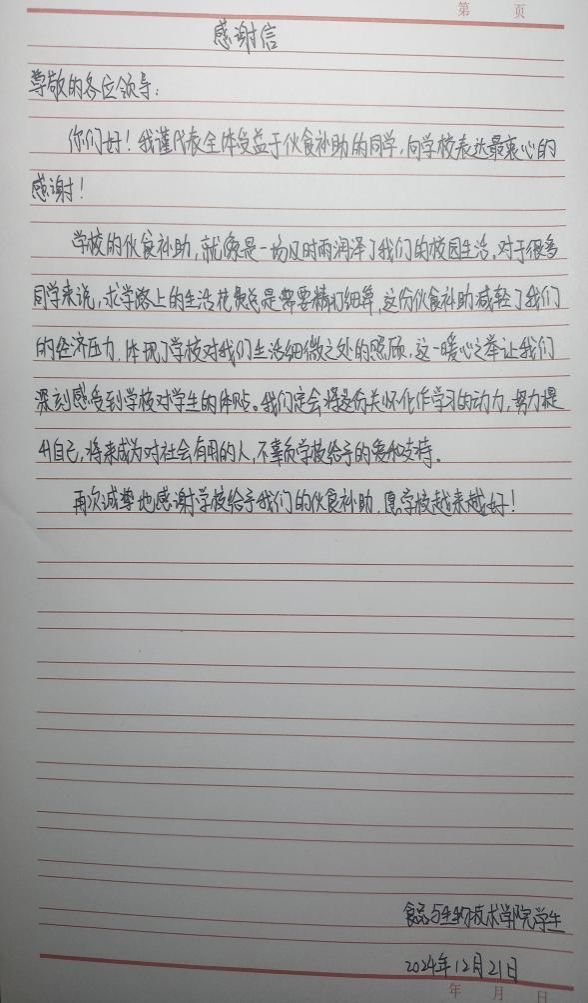 第 页
感谢信
尊敬的各位领导：
你们好！我谨代表全体受益于伙食补助的同学，向学校表达最衷心的
感谢！
学校的伙食补助，就像是一场及时雨润泽了我们的校园生活。对于很多
同学来说，求学路上的生活花费总是需要精打细算，这份伙食补助减轻了我们
的经济压力，体现了学校对我们生活细微之处的照顾，这一暖心之举让我们
深刻感受到学校对学生的体贴。我们定会将这份关怀化作学习的动力，努力提
升自己，将来成为对社会有用的人，不辜负学校给予的爱和支持。
再次诚挚地感谢学校给予我们的伙食补助，愿学校越来越好！
食品与生物技术学院学生
2024年12月21日
年 月 日